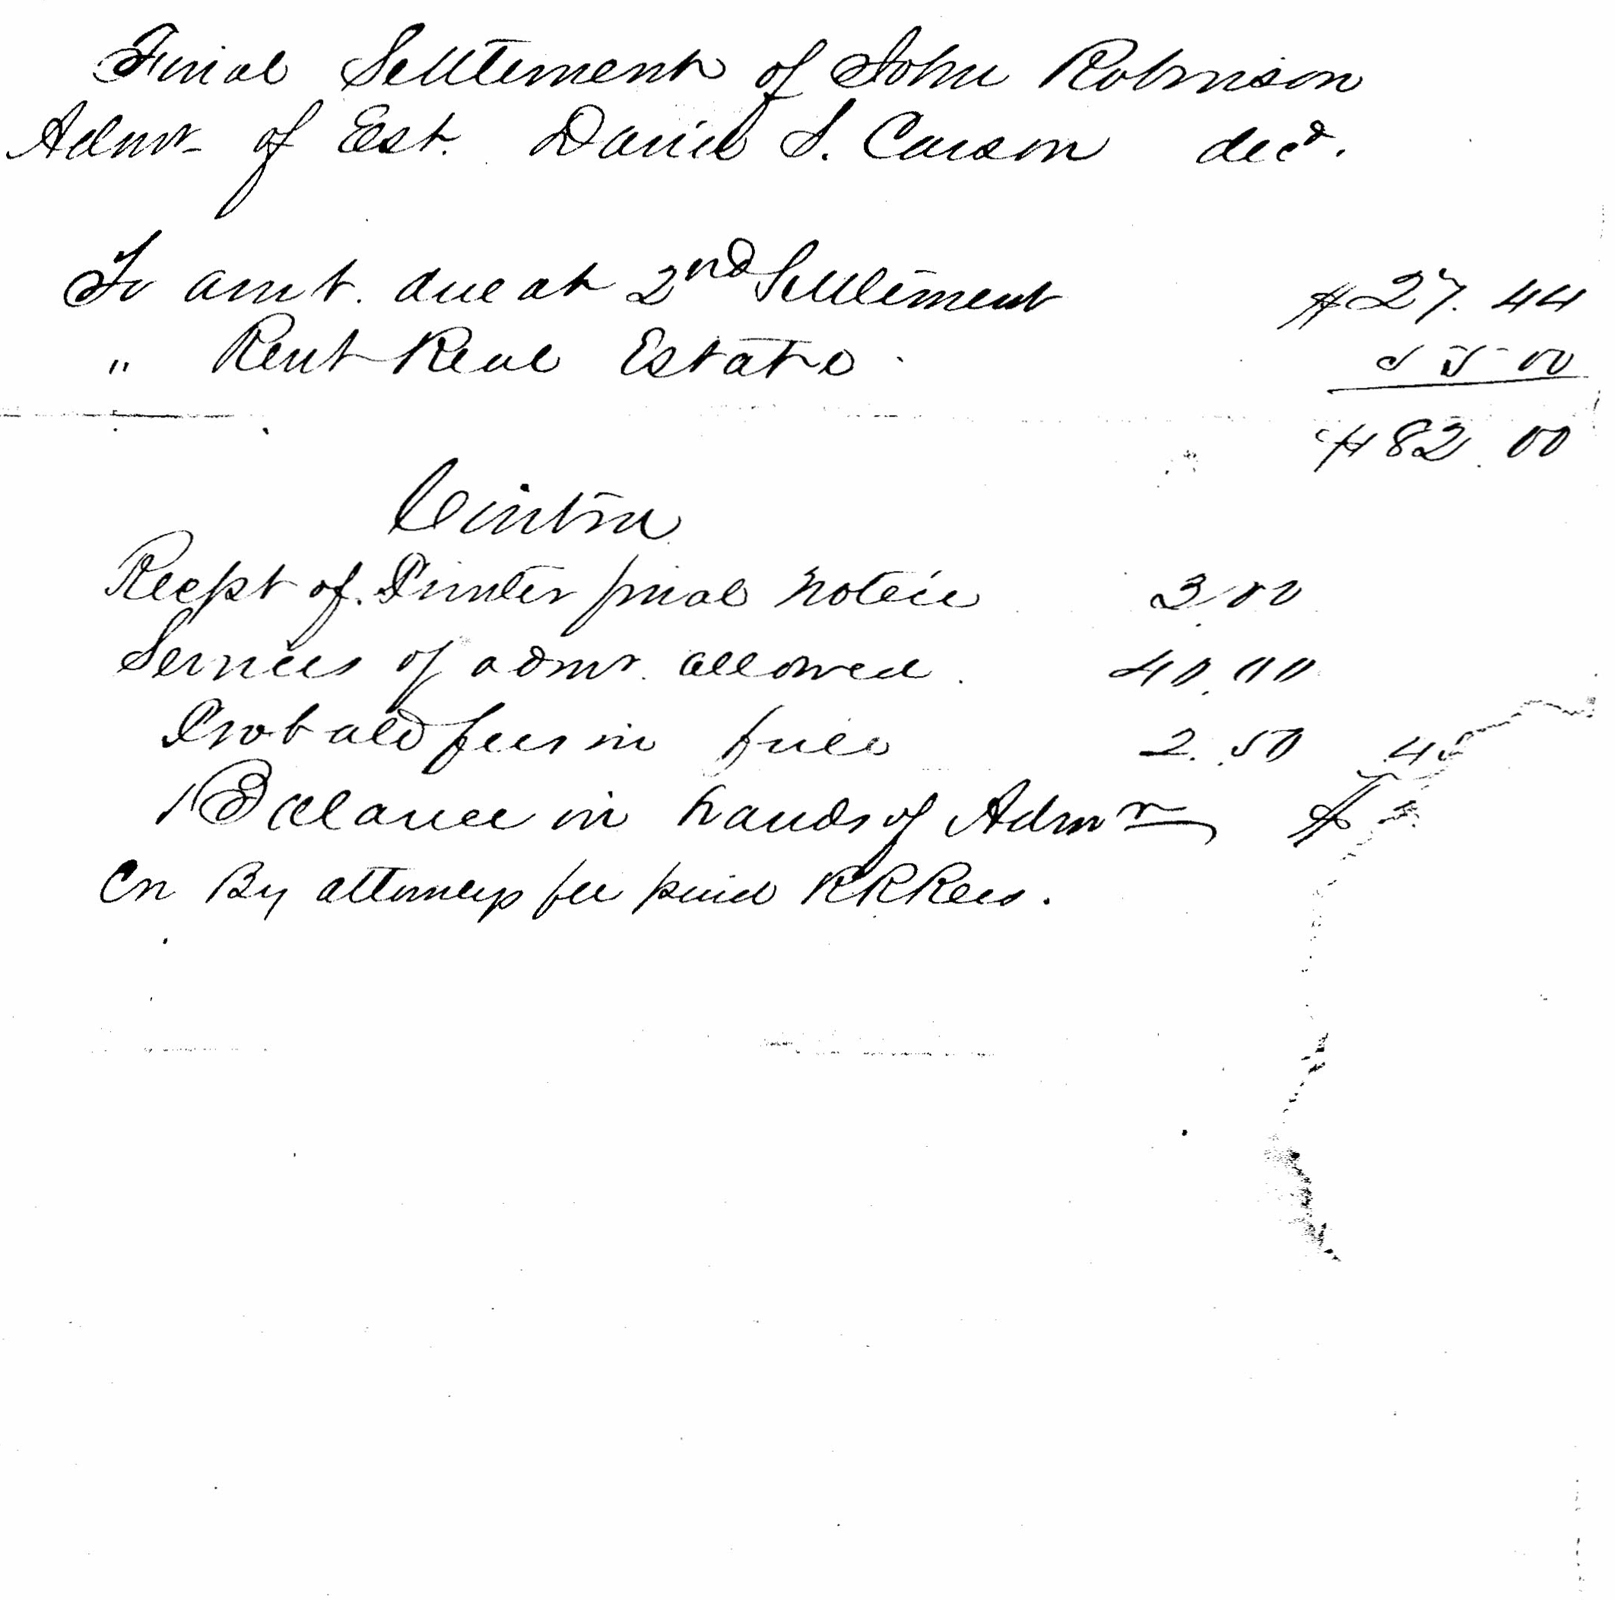 Final Settlement of John Robinson
Admr of Est. Daniel S. Carson decd.
To amt. due at 2nd Settlement $27.44
" Rent Real Estate 55 00
$82.00
Contra
Recpt of Printer final notice 3.00
Services of admr. allowed 40.00
Probate fees in full 2.50 45
Balance in hands of Admr $
Cr By attorneys fee paid R R Rees.